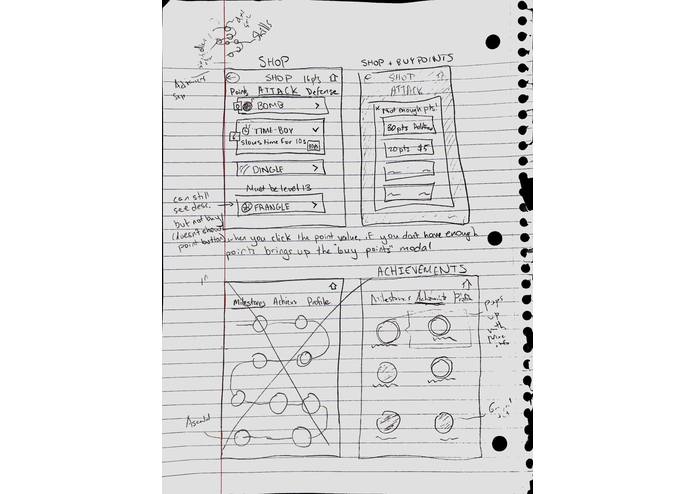 Skills
SHOP
SHOP + BUY POINTS
SHOP 16pts
Points ATTACK Defense
BOMB
TIME-BOY
slows time for 10s
DINGLE
Must be level 13
FRANGLE
can still
see desc.
but not buy
(doesn't show
point button)
SHOP
ATTACK
x Not enough pts!
80pts
20pts $5
when you click the point value, if you dont have enough
points brings up the "buy points" modal
ACHIEVEMENTS
Milestones Achiev Profile
Milestones Achievmts Profile
pops
up
with
more
info